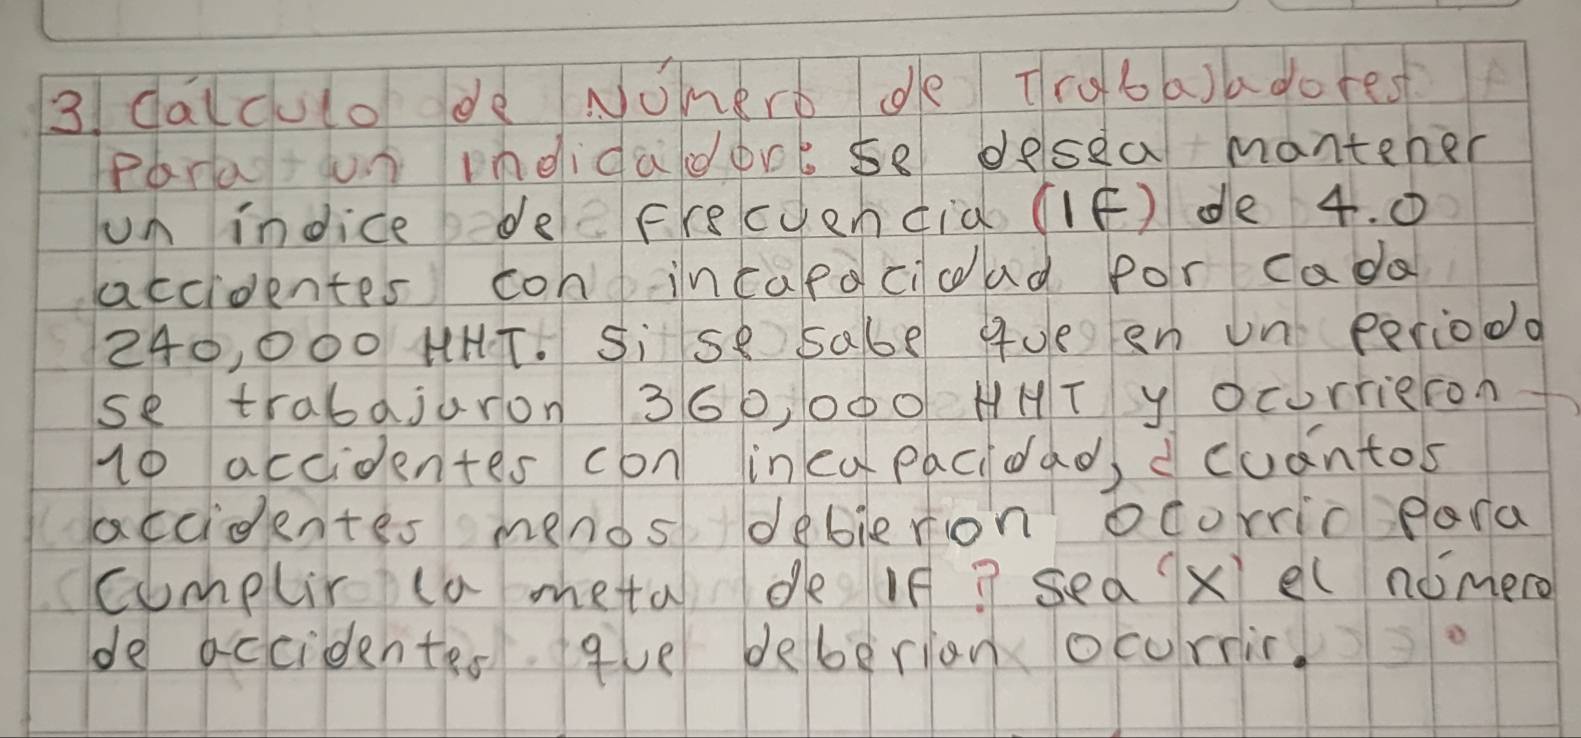 3. Cálculo de Número de Trabajadores
Para un indicador: se desea mantener
un índice de Frecuencia (IF) de 4.0
accidentes con incapacidad por cada
240,000 HHT. Si se sabe que en un periodo
se trabajaron 360,000 HHT y ocurrieron
10 accidentes con incapacidad, ¿ cuántos
accidentes menos debieron ocurrir para
cumplir la meta de IF ? sea 'x' el número
de accidentes que deberian ocurrir.